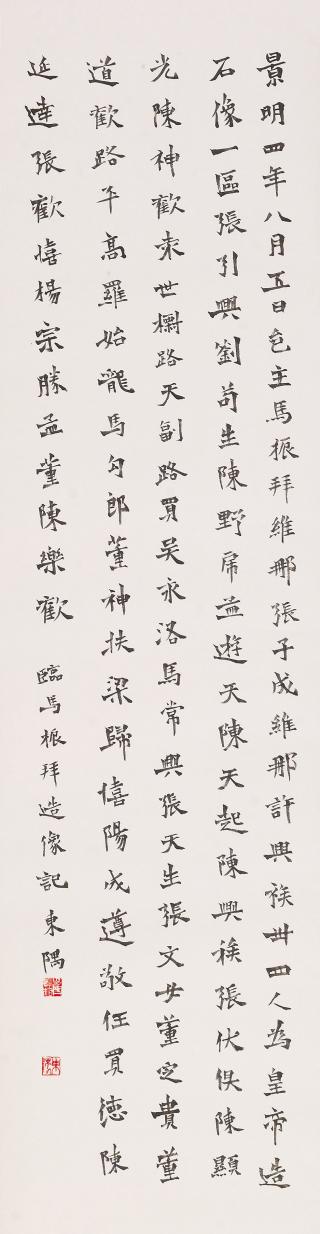 景明四年八月五日邑主馬振拜維那張子成維那許興族卅四人為皇帝造
石像一區張引興劉苟生陳野虎益遊天陳天起陳興族張伏俱陳顯
光陳神歡來世櫥路天副路買吴永洛馬常興張天生張文安董定貴董
道歡路平高羅始龍馬勾郎董神扶梁歸憘陽成遵敬任買德陳
延達張歡憘楊宗勝孟董陳樂歡
臨馬振拜造像記 東隅